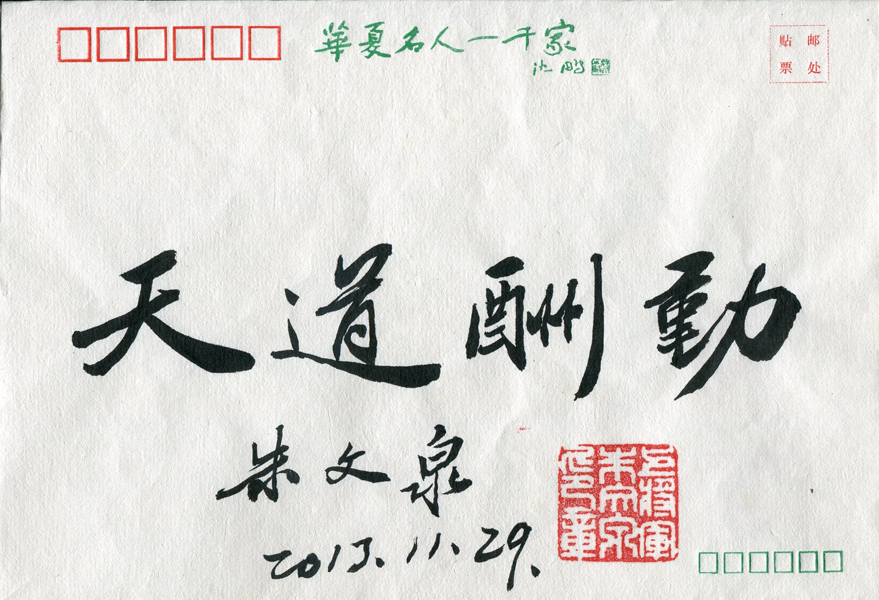 華夏名人一千家
沈鹏
贴邮
票处
天道酬勤
朱文泉
2013.11.29.